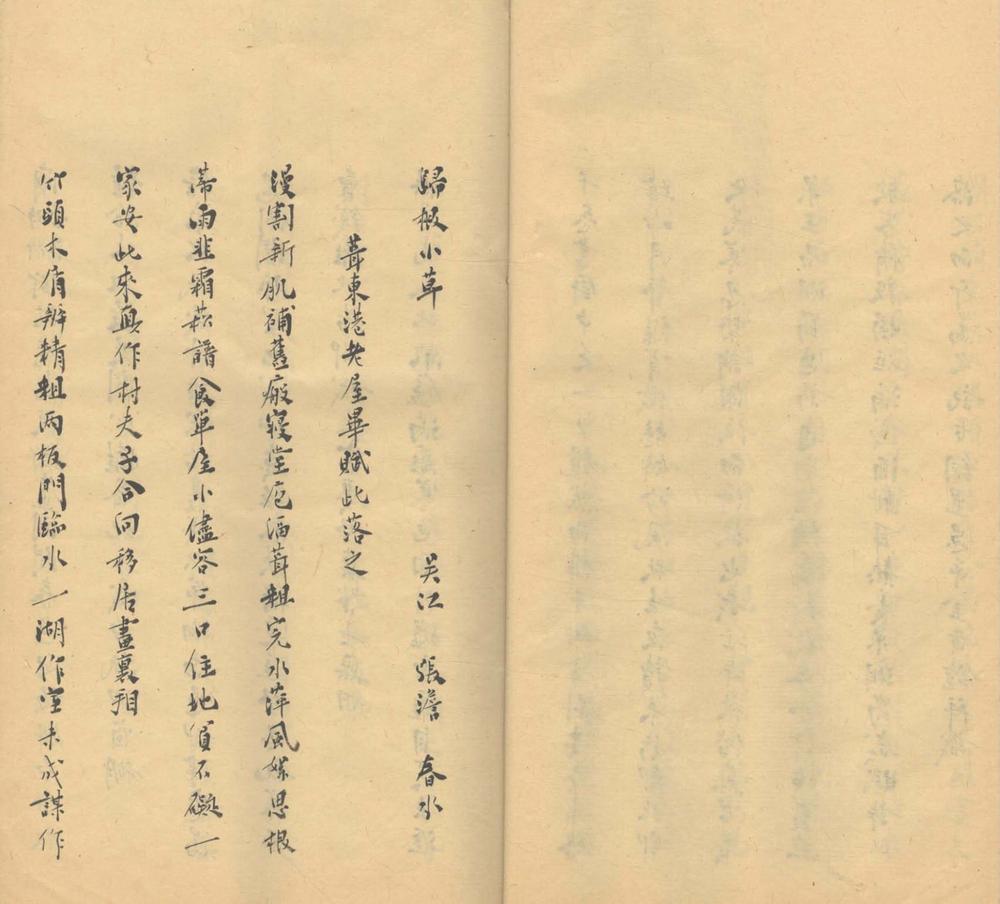 歸板小草
吳江 張澹 春水
葺東港老屋畢賦此落之
漫割新肌補舊瘢寢堂庖湢葺粗完水萍風媒思根
蒂雨韭霜菘譜食單屋小儘容三口住地貧不礙一
家安此來真作村夫子合向移居畫裏看
竹頭木屑辦精粗兩板門臨水一湖作宦未成謀作